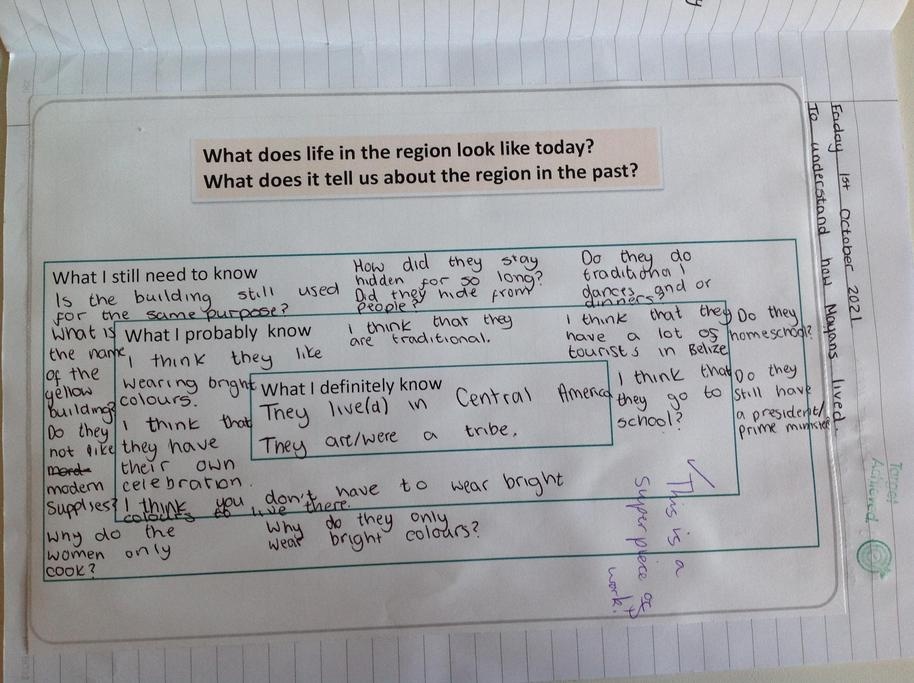 Friday 1st October 2021
To understand how Mayans lived.
Target
Achieved
What does life in the region look like today?
What does it tell us about the region in the past?
What I still need to know
Is the building still used
for the same purpose?
How did they stay
hidden for so long?
Did they hide from
people?
Do they do
traditional
dances and or
dinners?
What is
the name
of the
yellow
building?
Do they
not like
modern
supplies?
Why do the
women only
cook?
Why do they only
wear bright colours?
Do they
homeschool?
Do they
still have
a president/
prime minister
What I probably know
I think they like
wearing bright
colours.
I think that they
are traditional.
I think that they
have a lot of
tourists in Belize
I think that
they have
their own
celebration.
I think that
they go to
school?
I think you don't have to wear bright
colours to live there.
What I definitely know
They live(d) in Central America
They are/were a tribe.
✓This is a
Super piece of
work!